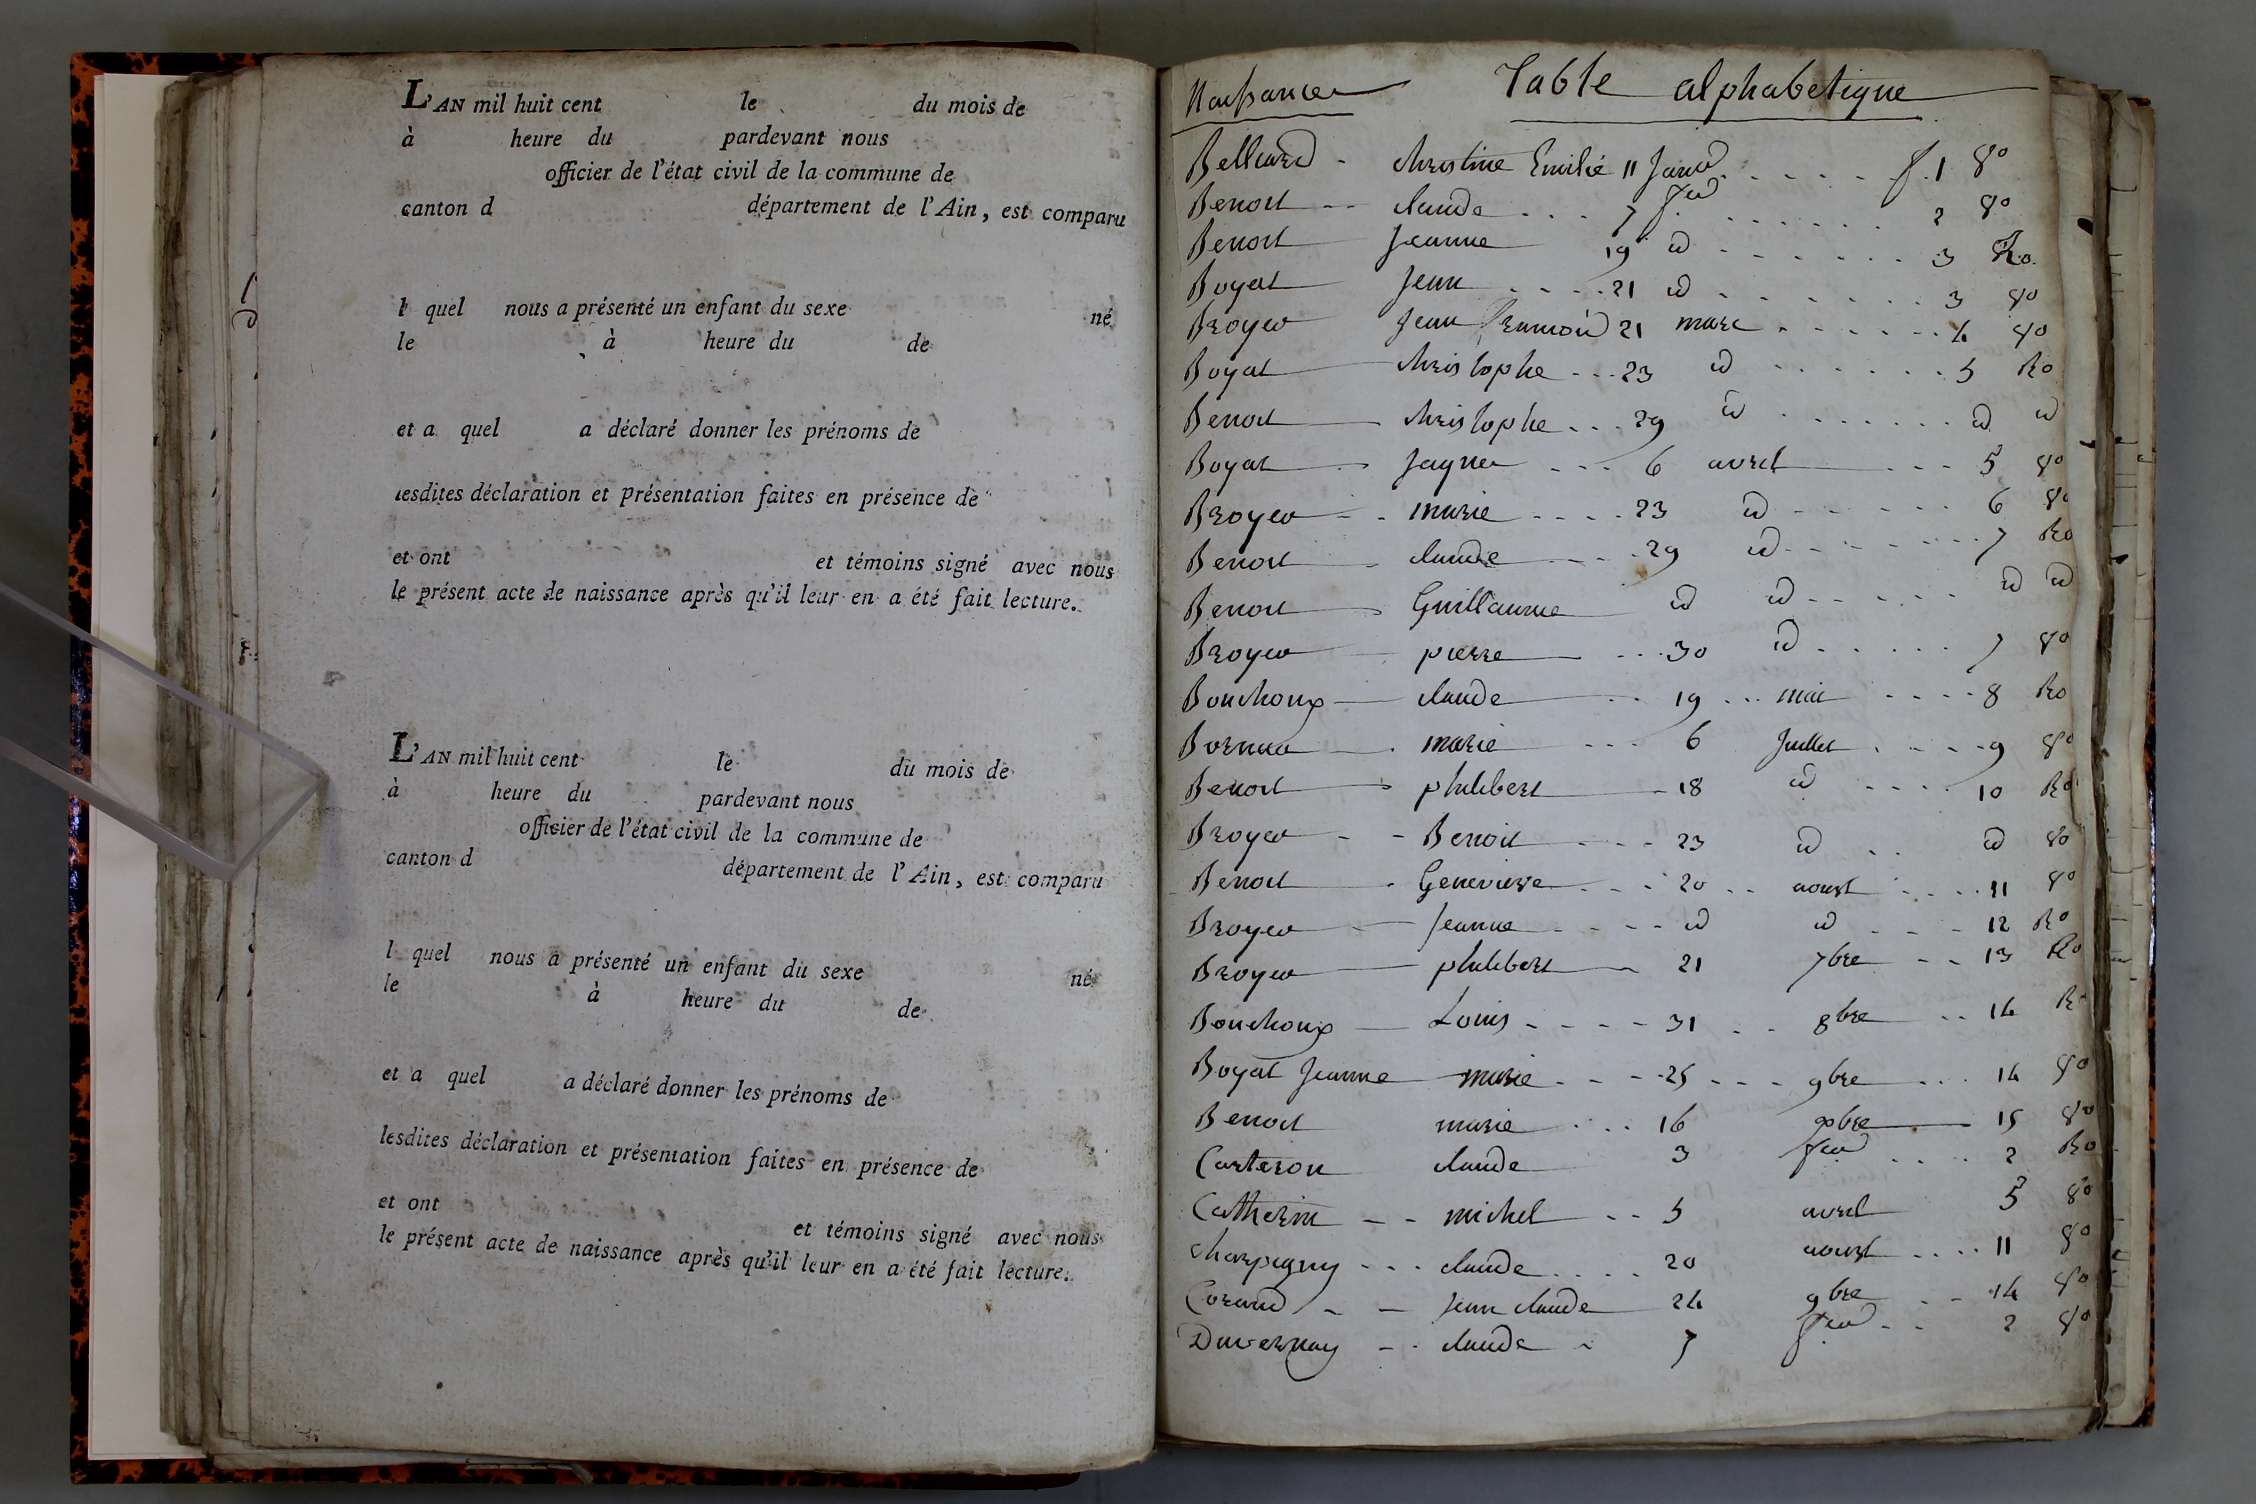 L'AN mil huit cent le du mois de
à heure du pardevant nous
officier de l'état civil de la commune de
canton d département de l'Ain, est comparu
l quel nous a présenté un enfant du sexe né
le à heure du de
et a quel a déclaré donner les prénoms de
lesdites déclaration et présentation faites en présence de
et ont et témoins signé avec nous
le présent acte de naissance après qu'il leur en a été fait lecture.
L'AN mil huit cent le du mois de
à heure du pardevant nous
officier de l'état civil de la commune de
canton d département de l'Ain, est comparu
l quel nous a présenté un enfant du sexe né
le à heure du de
et a quel a déclaré donner les prénoms de
lesdites déclaration et présentation faites en présence de
et ont et témoins signé avec nous
le présent acte de naissance après qu'il leur en a été fait lecture.
Naissances Table alphabetique
christine Emilie 11 Janv f. 1 Vo
Benoit claude 7 fev 2 Vo
Benoit Jeanne 19 id 3 Ro
Boyat Jean 21 id 3 Vo
Broyer Jean 21 mars 4 Vo
Boyat christophe 23 id 5 Ro
Benoit christophe 29 id id id
Boyat Jaques 6 avril 5 Vo
Broyer marie 23 id 6 Vo
Benoit claude 29 id 7 Ro
Benoit Guillaume id id id id
Broyer pierre 30 id 7 Vo
Bouchoux claude 19 mai 8 Ro
marie 6 Juillet 9 Vo
Benoit philibert 18 id 10 Ro
Broyer Benoit 23 id id Vo
Benoit Genevieve 20 aoust 11 Vo
Broyer Jeanne id id 12 Ro
Broyer philibert 21 7bre 13 Ro
Bouchoux Louis 31 8bre 14 Ro
Boyat Jeanne marie 25 9bre 14 Vo
Benoit marie 16 xbre 15 Vo
Carteron claude 3 fev 2 Ro
Catherin michel 5 avril 5 Vo
Charpigny claude 20 aoust 11 Vo
Corand Jean claude 24 9bre 14 Vo
Duvernay claude 7 fev 2 Vo